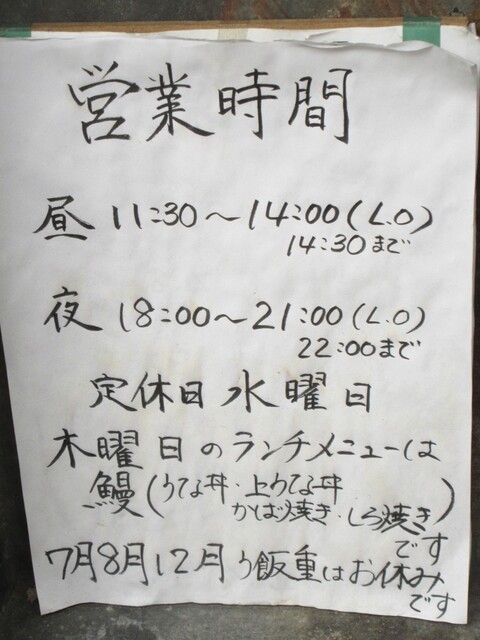 営業時間
昼 11:30〜14:00(L.O)
14:30まで
夜 18:00〜21:00(L.O)
22:00まで
定休日 水曜日
木曜日のランチメニューは
鰻(うな丼・上うな丼
かば焼き・しら焼き)
です
7月8月12月 う飯重はお休み
です